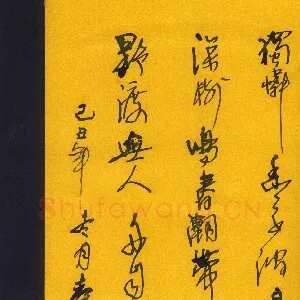 獨憐幽草澗
深樹鳴春潮帶
野渡無人舟自
己丑年月
Shufawang.CN